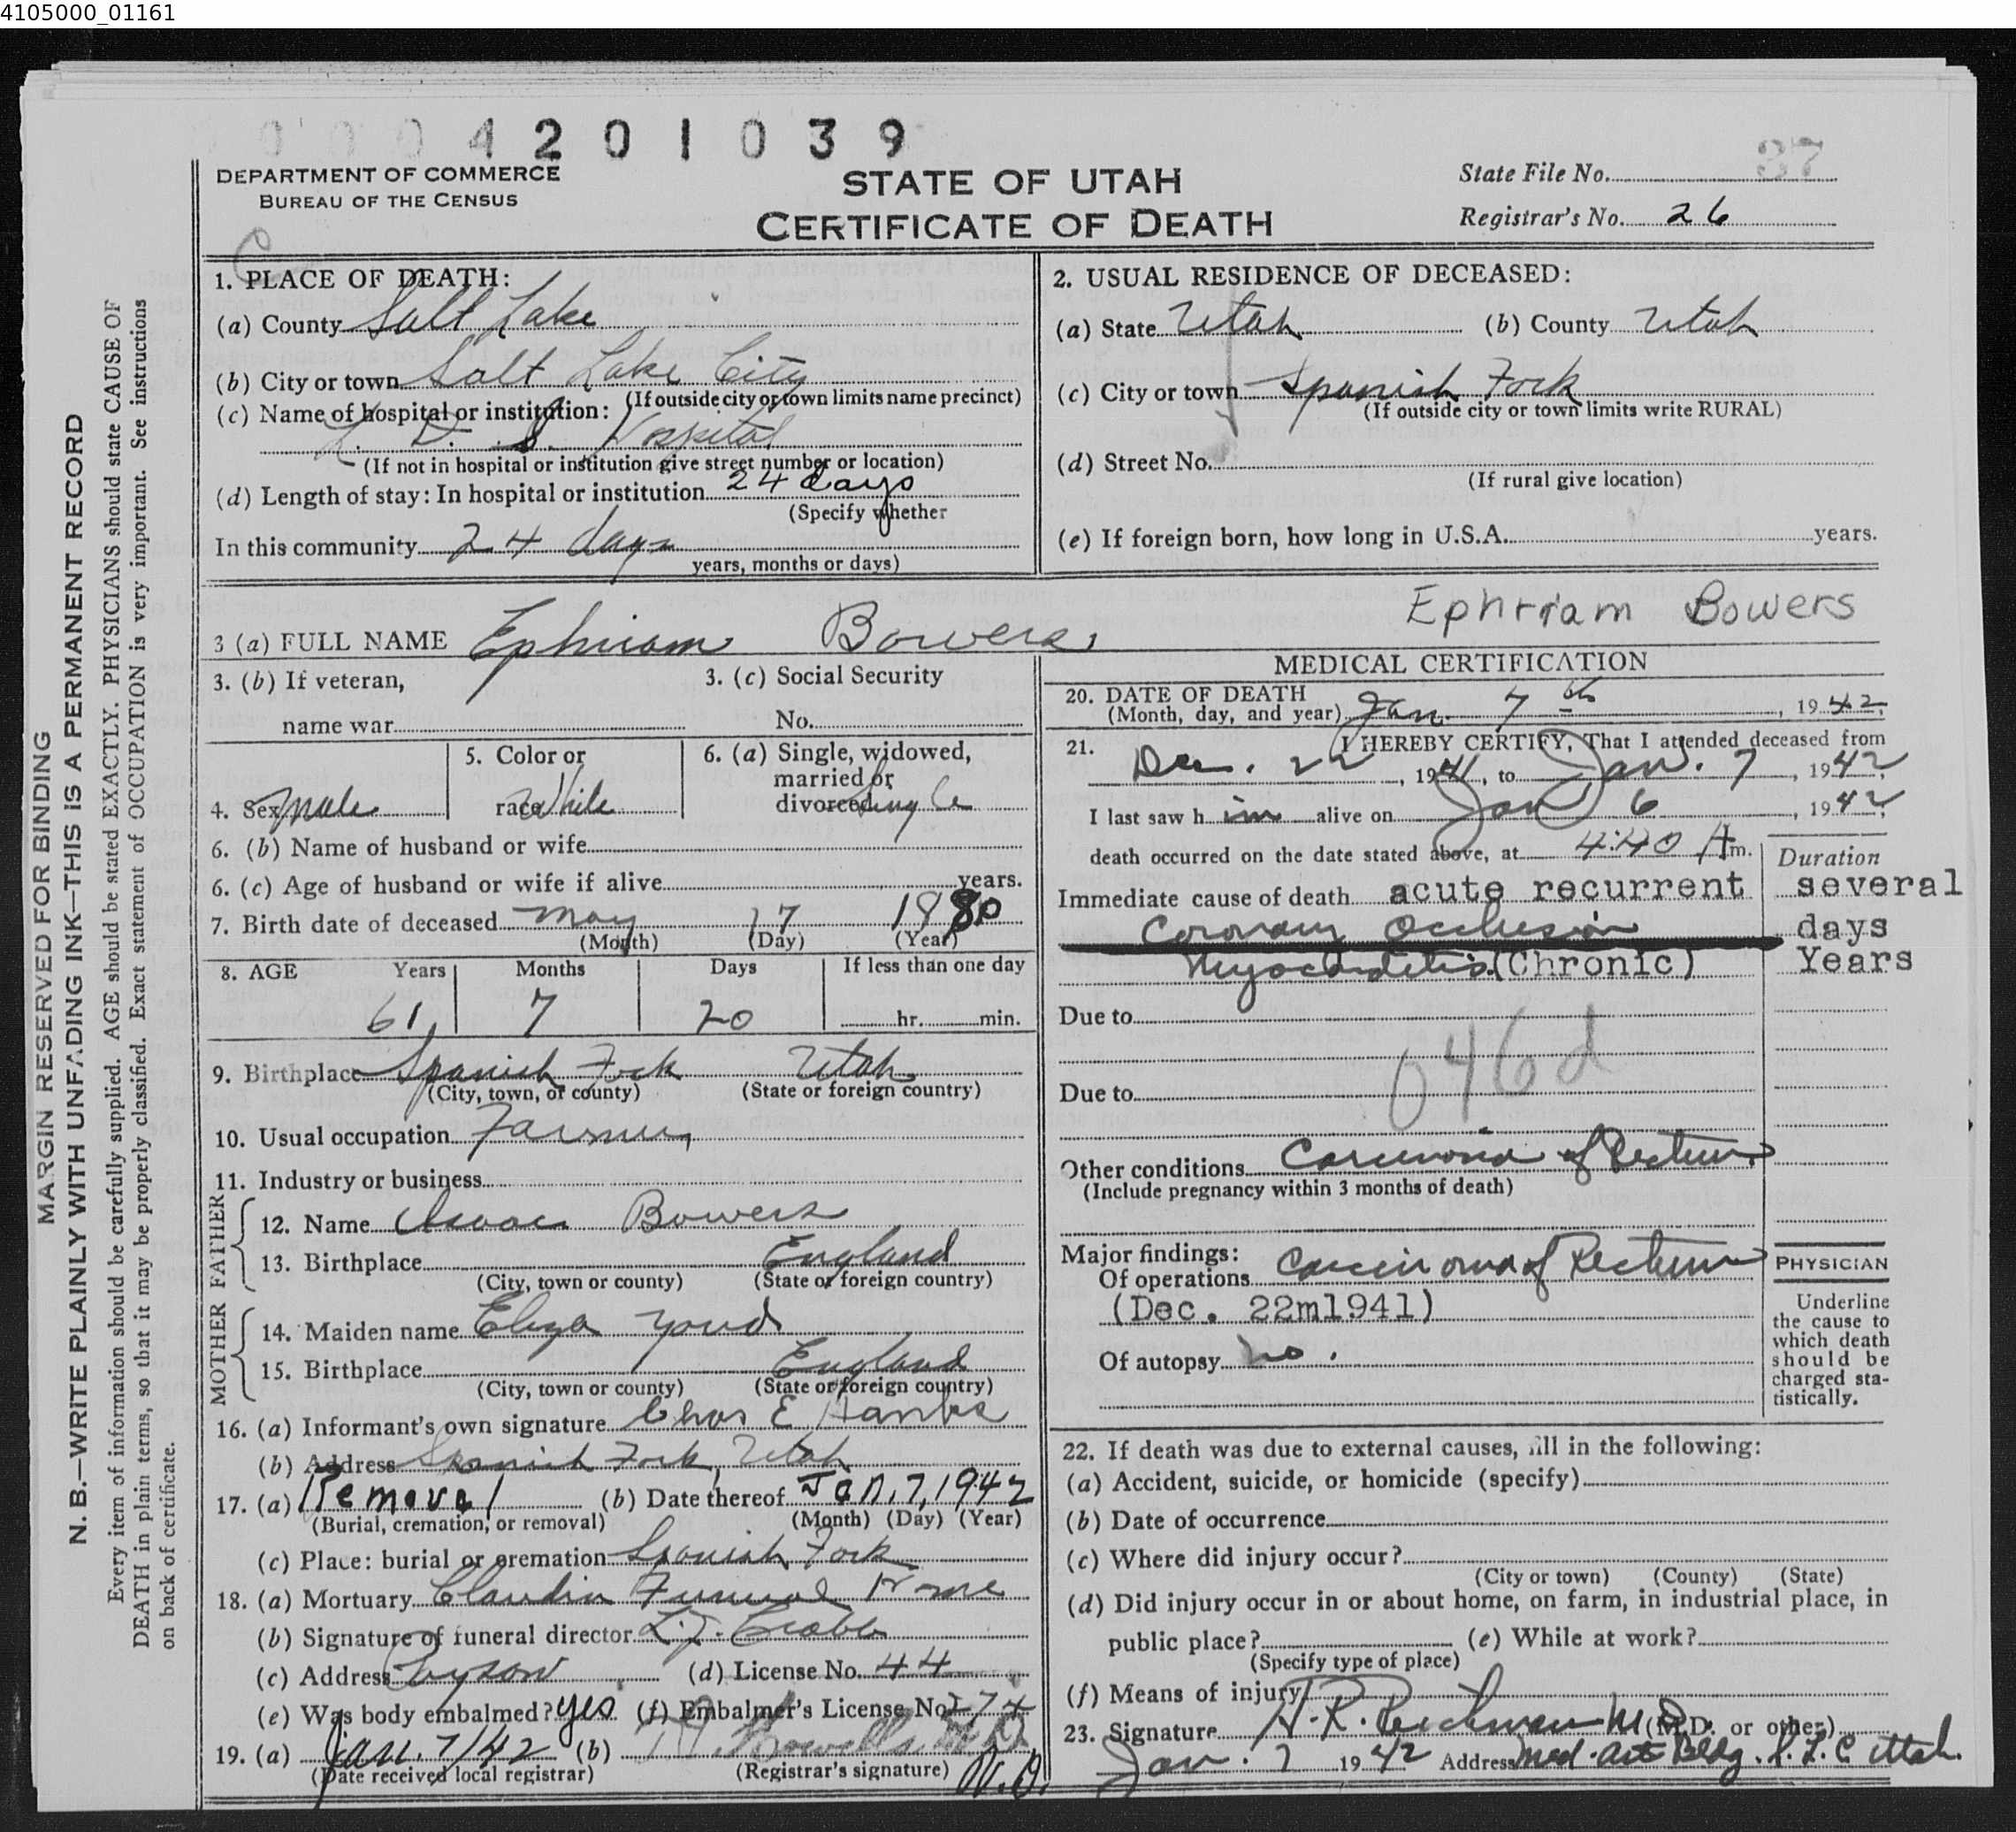 4105000_01161
0004201039
DEPARTMENT OF COMMERCE
BUREAU OF THE CENSUS
STATE OF UTAH
CERTIFICATE OF DEATH
State File No. 37
Registrar's No. 26
MARGIN RESERVED FOR BINDING
N. B.—WRITE PLAINLY WITH UNFADING INK—THIS IS A PERMANENT RECORD
Every item of information should be carefully supplied. AGE should be stated EXACTLY. PHYSICIANS should state CAUSE OF
DEATH in plain terms, so that it may be properly classified. Exact statement of OCCUPATION is very important. See instructions
on back of certificate.
C
1. PLACE OF DEATH:
(a) County Salt Lake
(b) City or town Salt Lake City
(If outside city or town limits name precinct)
(c) Name of hospital or institution:
L. D. S. Hospital
(If not in hospital or institution give street number or location)
(d) Length of stay: In hospital or institution 24 days
(Specify whether
In this community 24 days
years, months or days)
2. USUAL RESIDENCE OF DECEASED:
(a) State Utah (b) County Utah
(c) City or town Spanish Fork
(If outside city or town limits write RURAL)
(d) Street No.
(If rural give location)
(e) If foreign born, how long in U.S.A. years.
3 (a) FULL NAME Ephriam Bowers
Ephriam Bowers
3. (b) If veteran,
name war
3. (c) Social Security
No.
4. Sex Male
5. Color or
race White
6. (a) Single, widowed,
married or
divorced Single
6. (b) Name of husband or wife
6. (c) Age of husband or wife if alive years.
7. Birth date of deceased May 17 1880
(Month) (Day) (Year)
8. AGE Years Months Days If less than one day
61 7 20 hr. min.
9. Birthplace Spanish Fork Utah
(City, town, or county) (State or foreign country)
10. Usual occupation Farmer
11. Industry or business
FATHER
12. Name Isaac Bowers
13. Birthplace England
(City, town or county) (State or foreign country)
MOTHER
14. Maiden name Eliza Youd
15. Birthplace England
(City, town or county) (State or foreign country)
16. (a) Informant's own signature Chas E Hanks
(b) Address Spanish Fork, Utah
17. (a) Removal (b) Date thereof Jan. 7, 1942
(Burial, cremation, or removal) (Month) (Day) (Year)
(c) Place: burial or cremation Spanish Fork
18. (a) Mortuary Claudin Funeral Home
(b) Signature of funeral director L. J. Crabb
(c) Address Payson (d) License No. 44
(e) Was body embalmed? yes (f) Embalmer's License No. 174
19. (a) Jan. 7/42 (b)
(Date received local registrar) (Registrar's signature)
MEDICAL CERTIFICATION
20. DATE OF DEATH
(Month, day, and year) Jan. 7th, 1942
21. I HEREBY CERTIFY, That I attended deceased from
Dec. 22, 1941, to Jan. 7, 1942,
I last saw him alive on Jan 6, 1942,
death occurred on the date stated above, at 4:40 A m.
Duration
Immediate cause of death acute recurrent several
Coronary Occlusion days
Myocarditis (Chronic) Years
Due to
046d
Due to
Other conditions Carcinoma of Rectum
(Include pregnancy within 3 months of death)
Major findings:
Of operations Carcinoma of Rectum
(Dec. 22m1941)
Of autopsy no.
PHYSICIAN
Underline
the cause to
which death
should be
charged sta-
tistically.
22. If death was due to external causes, fill in the following:
(a) Accident, suicide, or homicide (specify)
(b) Date of occurrence
(c) Where did injury occur?
(City or town) (County) (State)
(d) Did injury occur in or about home, on farm, in industrial place, in
public place? (e) While at work?
(Specify type of place)
(f) Means of injury
23. Signature H. R. Reichman M.D. (M.D. or other)
Jan. 7 1942 Address Med. Art Bldg. S. L. C Utah.